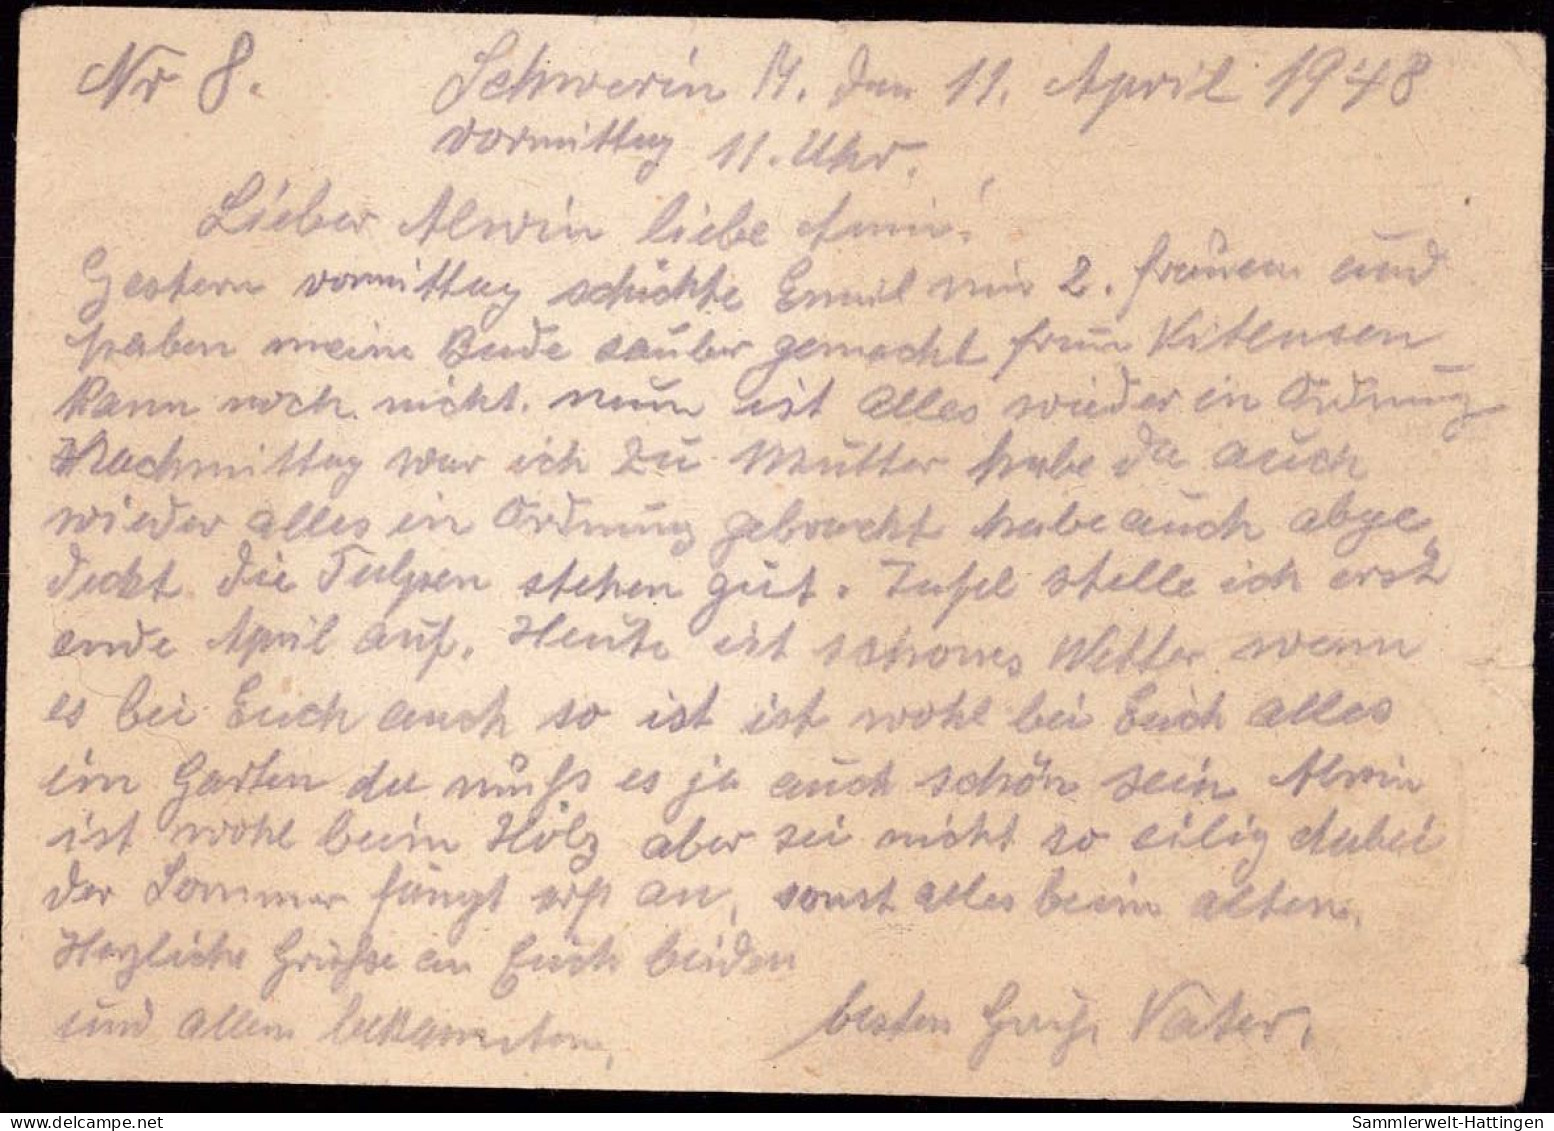 Nr 8. Schwerin M. den 11. April 1948
vormittag 11. Uhr.
Lieber Alwin liebe Anni!
Gestern vormittag schickte Emil mir 2. frauen und
haben meine Bude sauber gemacht frau
kann noch nicht. nun ist alles wieder in Ordnung
Nachmittag war ich zu Mutter habe da auch
wieder alles in Ordnung gebracht habe auch abge
deckt die Tulpen stehen gut. Tafel stelle ich erst
ende April auf. Heute ist schönes Wetter wenn
es bei Euch auch so ist ist wohl bei Euch alles
im Garten da muß es ja auch schön sein Alwin
ist wohl beim Holz aber sei nicht so eilig dabei
der Sommer fängt erst an, sonst alles beim alten.
Herzliche Grüße an Euch beiden
und allen bekannten, besten Gruß Vater.
Sammlerwelt-Hattingen